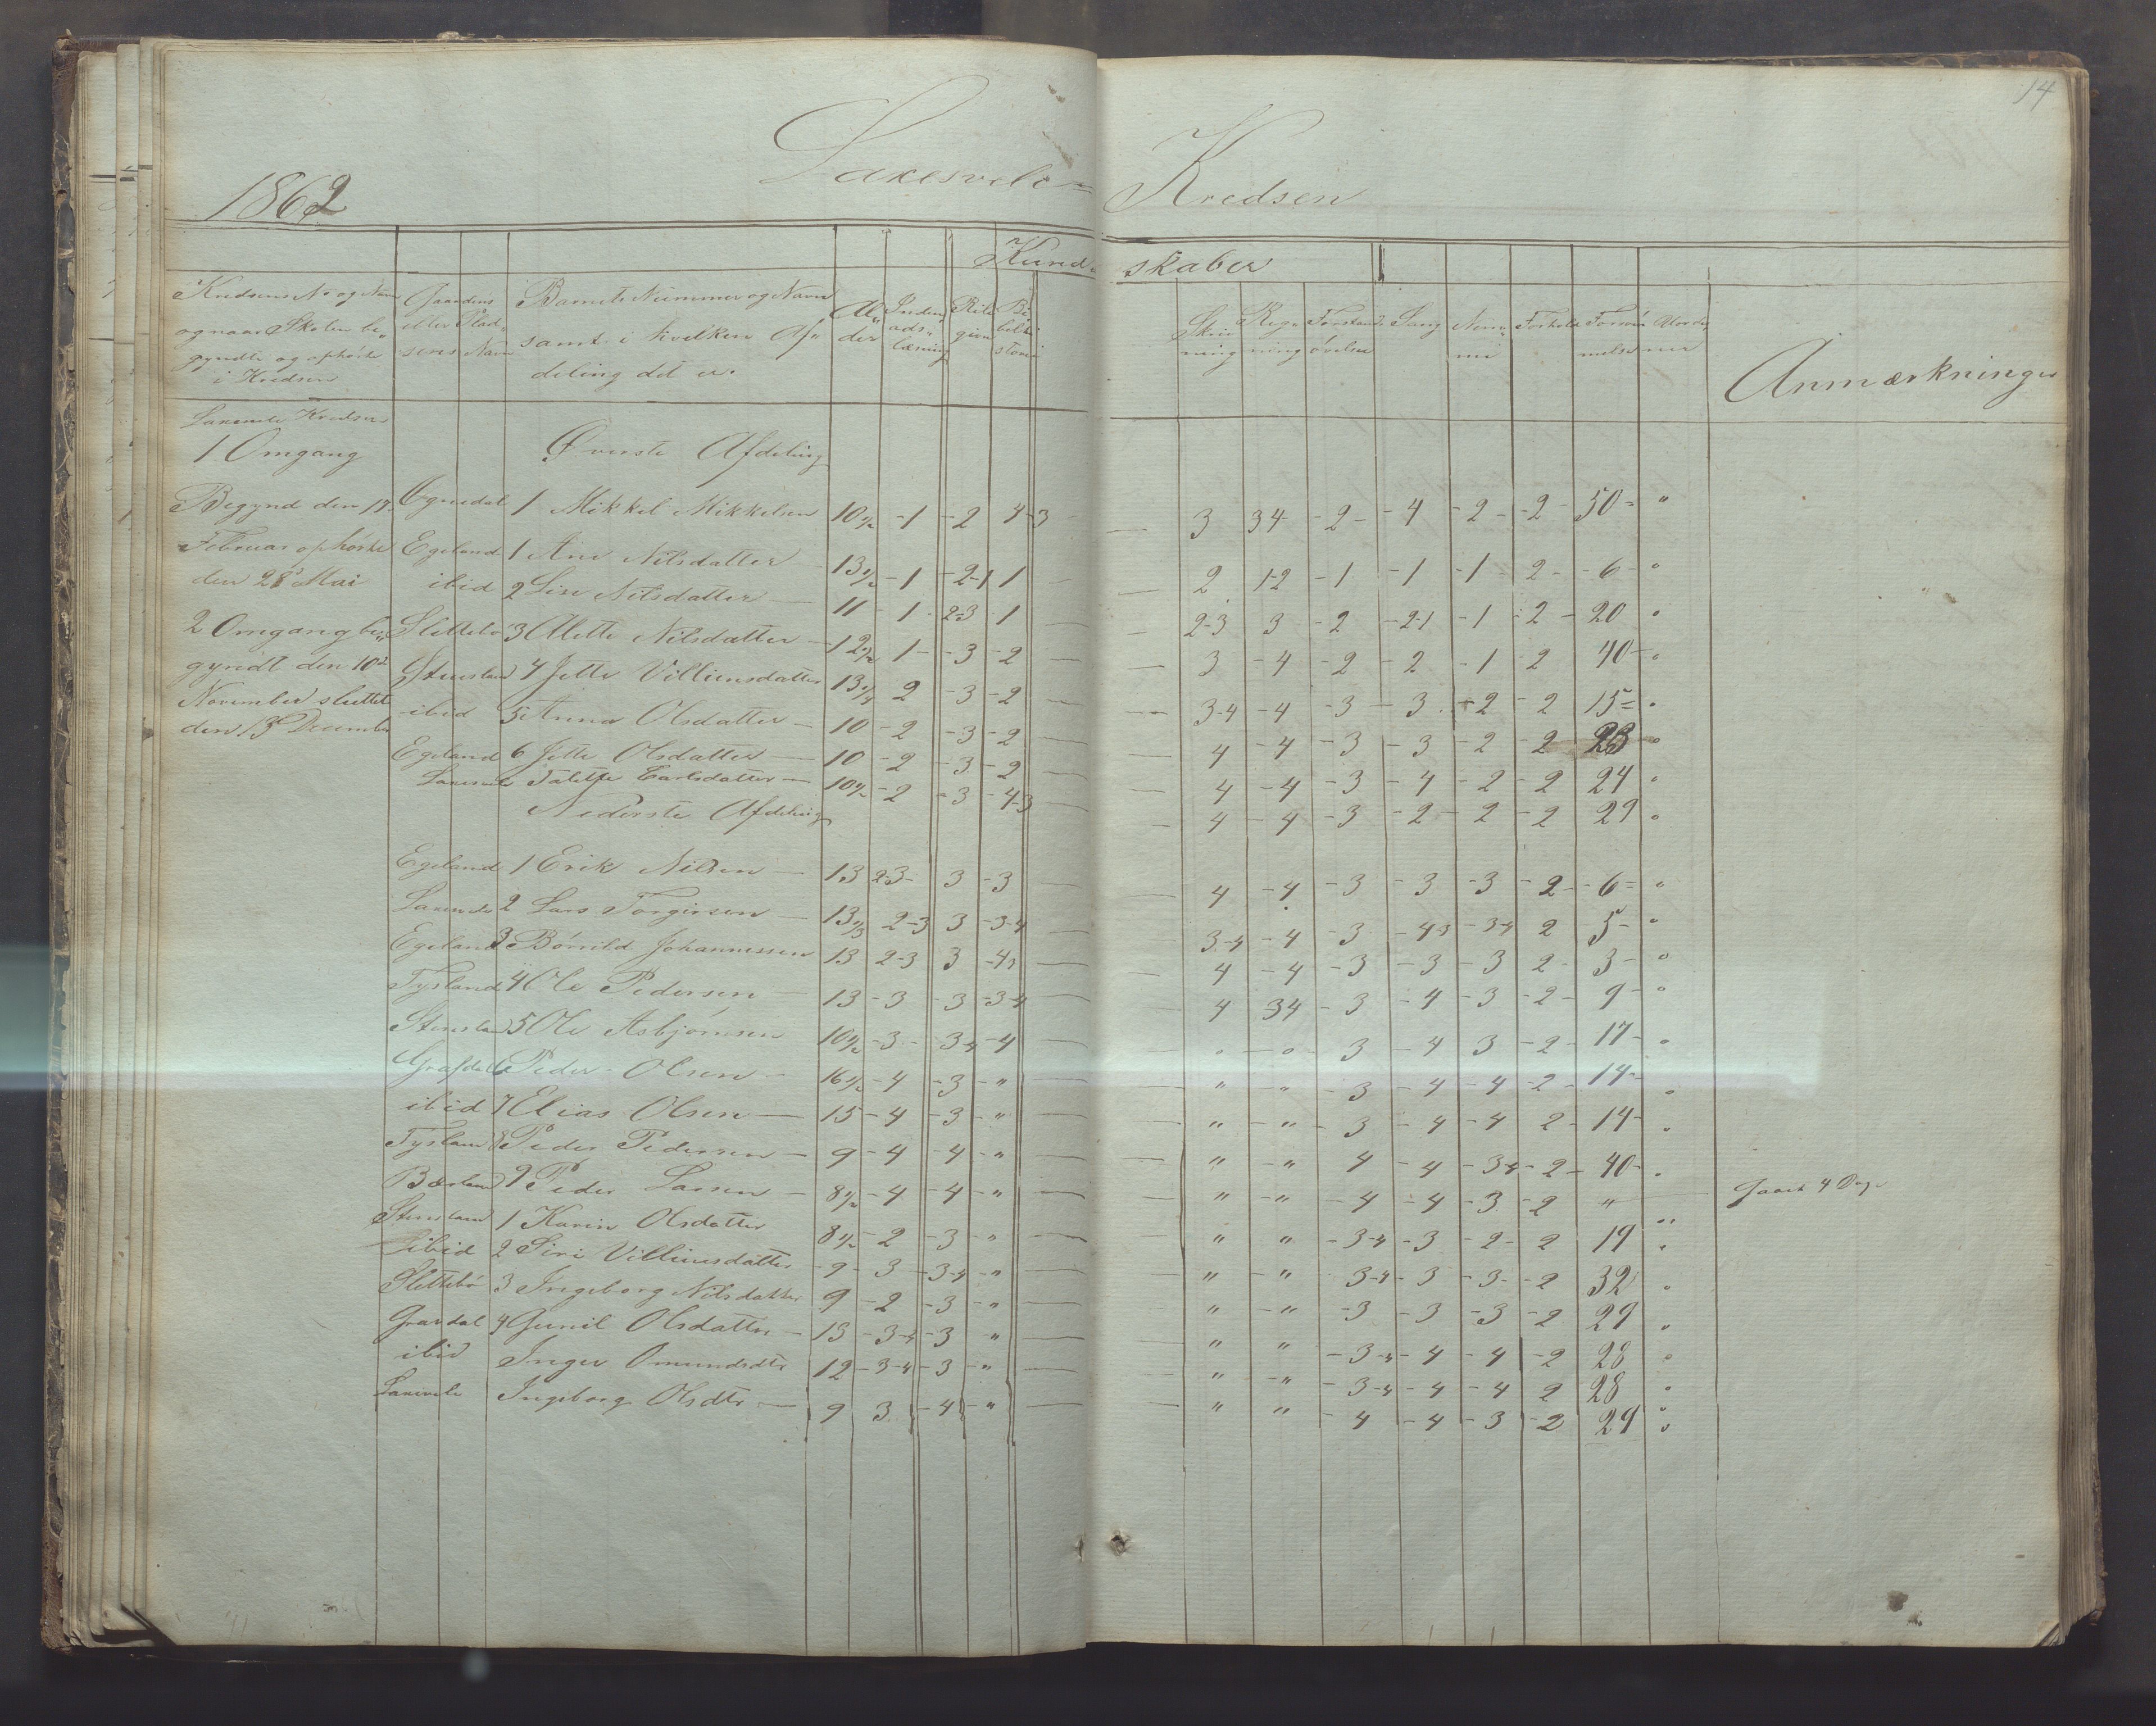 14
1862
Kredsen
Kund- skaber
Kredsens No og Navn
og naar Skolen be-
gyndte og ophørte
i Kredsen
Gaardens
eller Plad-
sens Navn
Barnets Nummer og Navn
samt i hvilken Af-
deling det er.
Al-
der
Inden-
ads-
læsning
Reli-
gion
Bi-
belhi-
storie
Skriv-
ning
Reg-
ning
Forstands-
øvelse
Sang
Forhold
Forsøm-
melse
Anmærkninger
Kredsen
1 Omgang
Øverste Afdeling
Begynd den 17
Februar ophørte
den 28 Mai
2 Omgang be-
gyndt den 10
November sluttet
den 13 December
Ognedal 1 Mikkel Mikkelsen 10½ -1 -2 4-3 3 34 -2- -4 -2- -2 50 "
Egeland 1 Ane Nilsdatter 13½ -1 -2-1 1 2 1-2 -1 -1 -1 2- -6- "
ibid 2 Lise Nilsdatter 11 -1 2-3 1 2-3 3 -2 -2-1 -1 -2 -20 "
Slettebø 3 Alette Nilsdatter 12½ 1 -3 -2 3 -4 -2 -2 -1 2 40 "
Stensland 4 Jette Villiemsdatter 13¼ 2 -3 -2 3-4 -4 -3 -3 -2 -2 15 "
ibid 5 Anna Olsdatter 10 -2 -3 -2 4 -4 -3 -3 -2 -2 23 "
Egeland 6 Jette Olsdatter 10 -2 -3 -2 4 -4 -3 -4 -2 -2 24 "
Talette Carlsdatter 10½ -2 -3 -4-3 4 -4 -3 -2 -2 -2 29 "
Nederste Afdeling
Egeland 1 Erik Nilsen 13 2-3 3 -3 4 -4 -3 -3 -3 -2 -6 "
2 Lars Torgirsen 13⅓ 2-3 3 -3-4 3-4 -4 -3 -4-3 -3-4 2 5 "
Egeland 3 Johannessen 13 2-3 3 -43 4 -4 -3 -3 -3 2 3- "
Tysland 4 Ole Pedersen 13 -3 -3 -3-4 4 34 -3 -4 -3 -2- 9- "
Stensland 5 Ole Asbjørnsen 10½ -3 3-4 -4 " " 3 -4 3 -2- 17- "
6 Peder Olsen 16½ -4 -3 -" " " -3 -4 -4 -2 -14- "
ibid 7 Elias Olsen 15 -4 -3 -" " " 3 -4 -4 2 -14- "
Tysland 8 Peder Pedersen 9 -4 -4 -" " " 4 -4 -3-4 -2- 40- "
9 Peder Larsen 8½ -4 -4 -" " " -4 -4 -3 -2 " Gaaet 4 Dage
Stensland 1 Karin Olsdatter 8½ -2 -3 -" " " -3-4 -3 -2- 2 19 "
ibid 2 Siri Villiemsdatter 9 3 -3-4 -" " " 3-4 -3 -3- -2 32 "
Slettebø 3 Ingeborg Nilsdatter 9 -2 -3 -" " " -3 -3 -3 -2 29 "
Gravdal 4 Gunil Olsdatter 13 -3-4 -3 -" " " -3-4 -4 -4 -2 28 "
ibid Inger Omundsdtr 12 -3-4 -3 -" " " -3-4 -4 -4 2 28 "
Ingeborg Olsdtr 9 3 -4 -" " " -4 -4 -3 -2 29 "